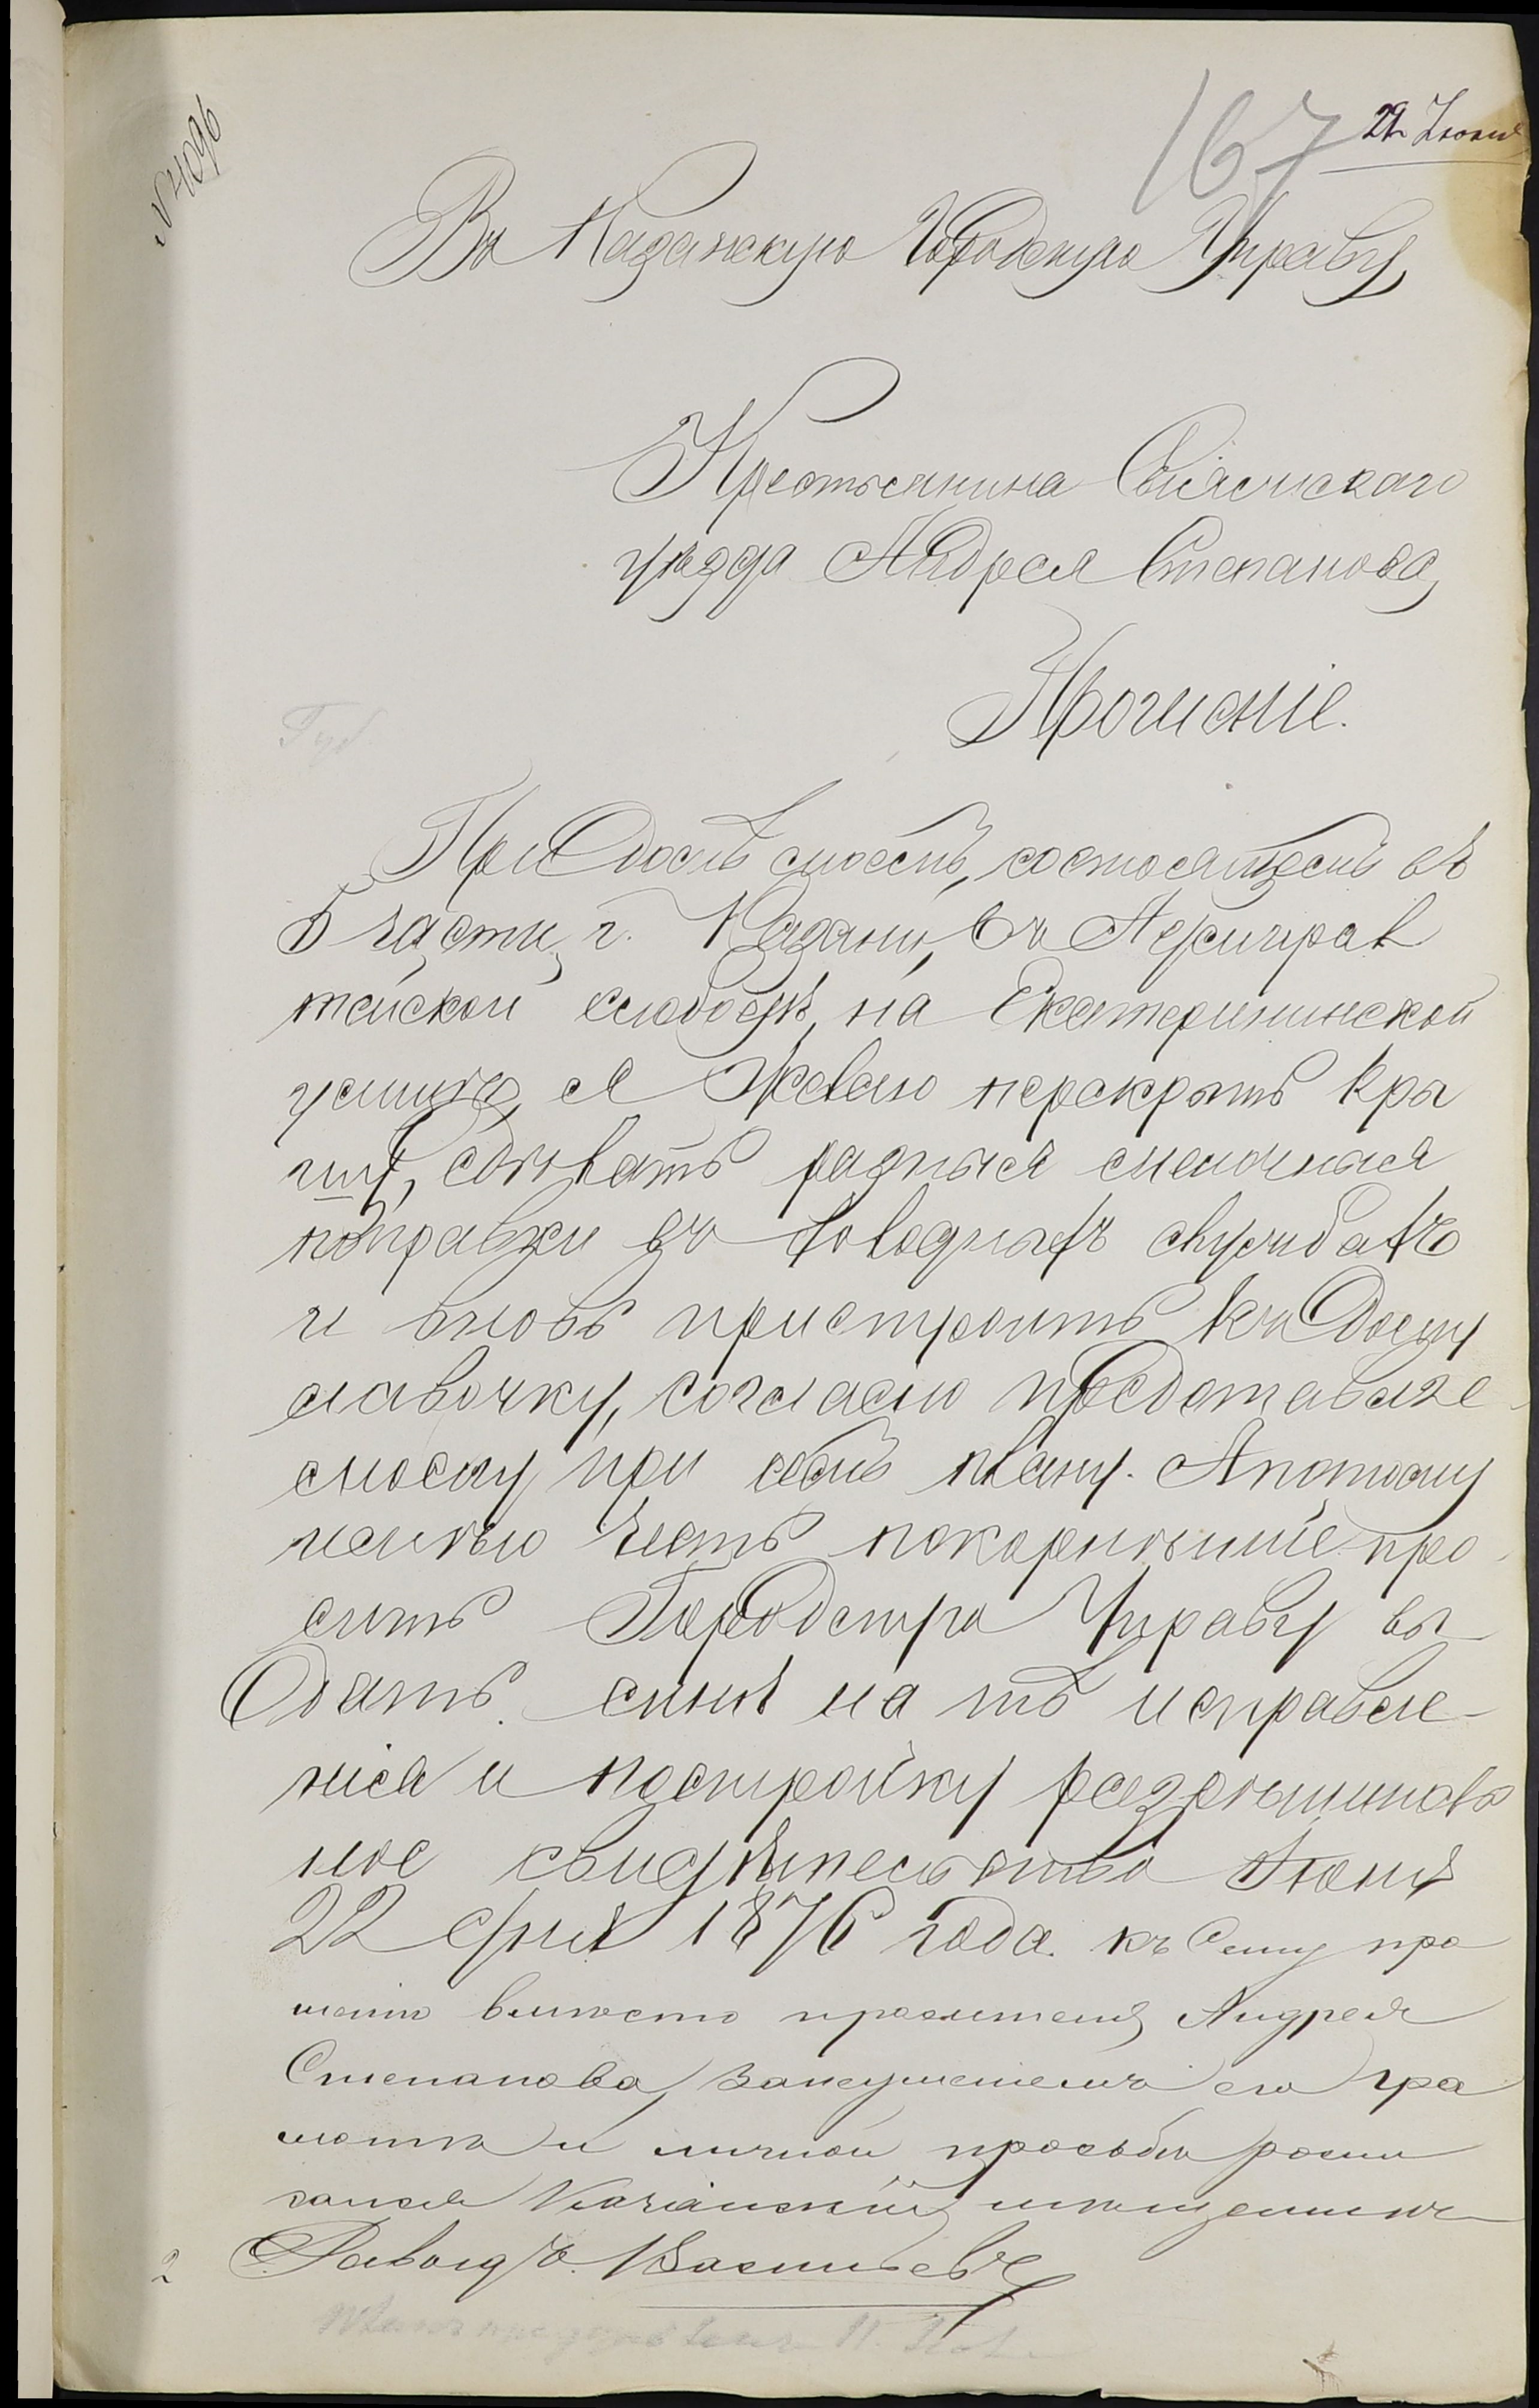 № 4096
167
22 Іюня
Въ Казанскую Городскую Управу,
Крестьянина Свіяжскаго
уѣзда Андрея Степанова,
Прошеніе.
При домѣ моемъ, состоящемъ въ
5 части, г. Казани, въ Адмирал
тейской слободѣ, на Екатерининской
улицѣ, я желаю перекрыть кры
шу, сдѣлать разныя мелочныя
поправки въ холодныхъ службахъ
и вновь пристроить къ дому
лавочку, согласно представляе
мому при семъ плану. А потому
имѣю честь покорнѣйше про
сить Городскую Управу вы
дать мнѣ на тѣ исправле-
нія и постройку разрѣшитель
ное свидѣтельство Іюня
22 дня 1876 года. къ сему про
шенію вмѣсто просителя Андрея
Степанова, за неумѣніемъ его гра
моты и личной прозьбы роспи
сался мѣщанинъ
Васильевъ
2